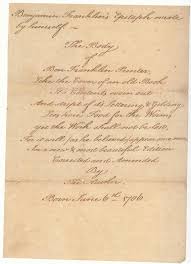 Benjamin Franklin's Epitaph wrote
by himself —
The Body
of
Ben Franklin Printer
Like the Cover of an old Book
Its Contents worn out
And stript of its Lettering & Gilding
Lies here Food for the Worms
Yet the Work shall not be lost
For it will (as he believed) appear once
In a new & most beautiful Edition
Corrected and Amended
By
The Author
Born June 6th 1706